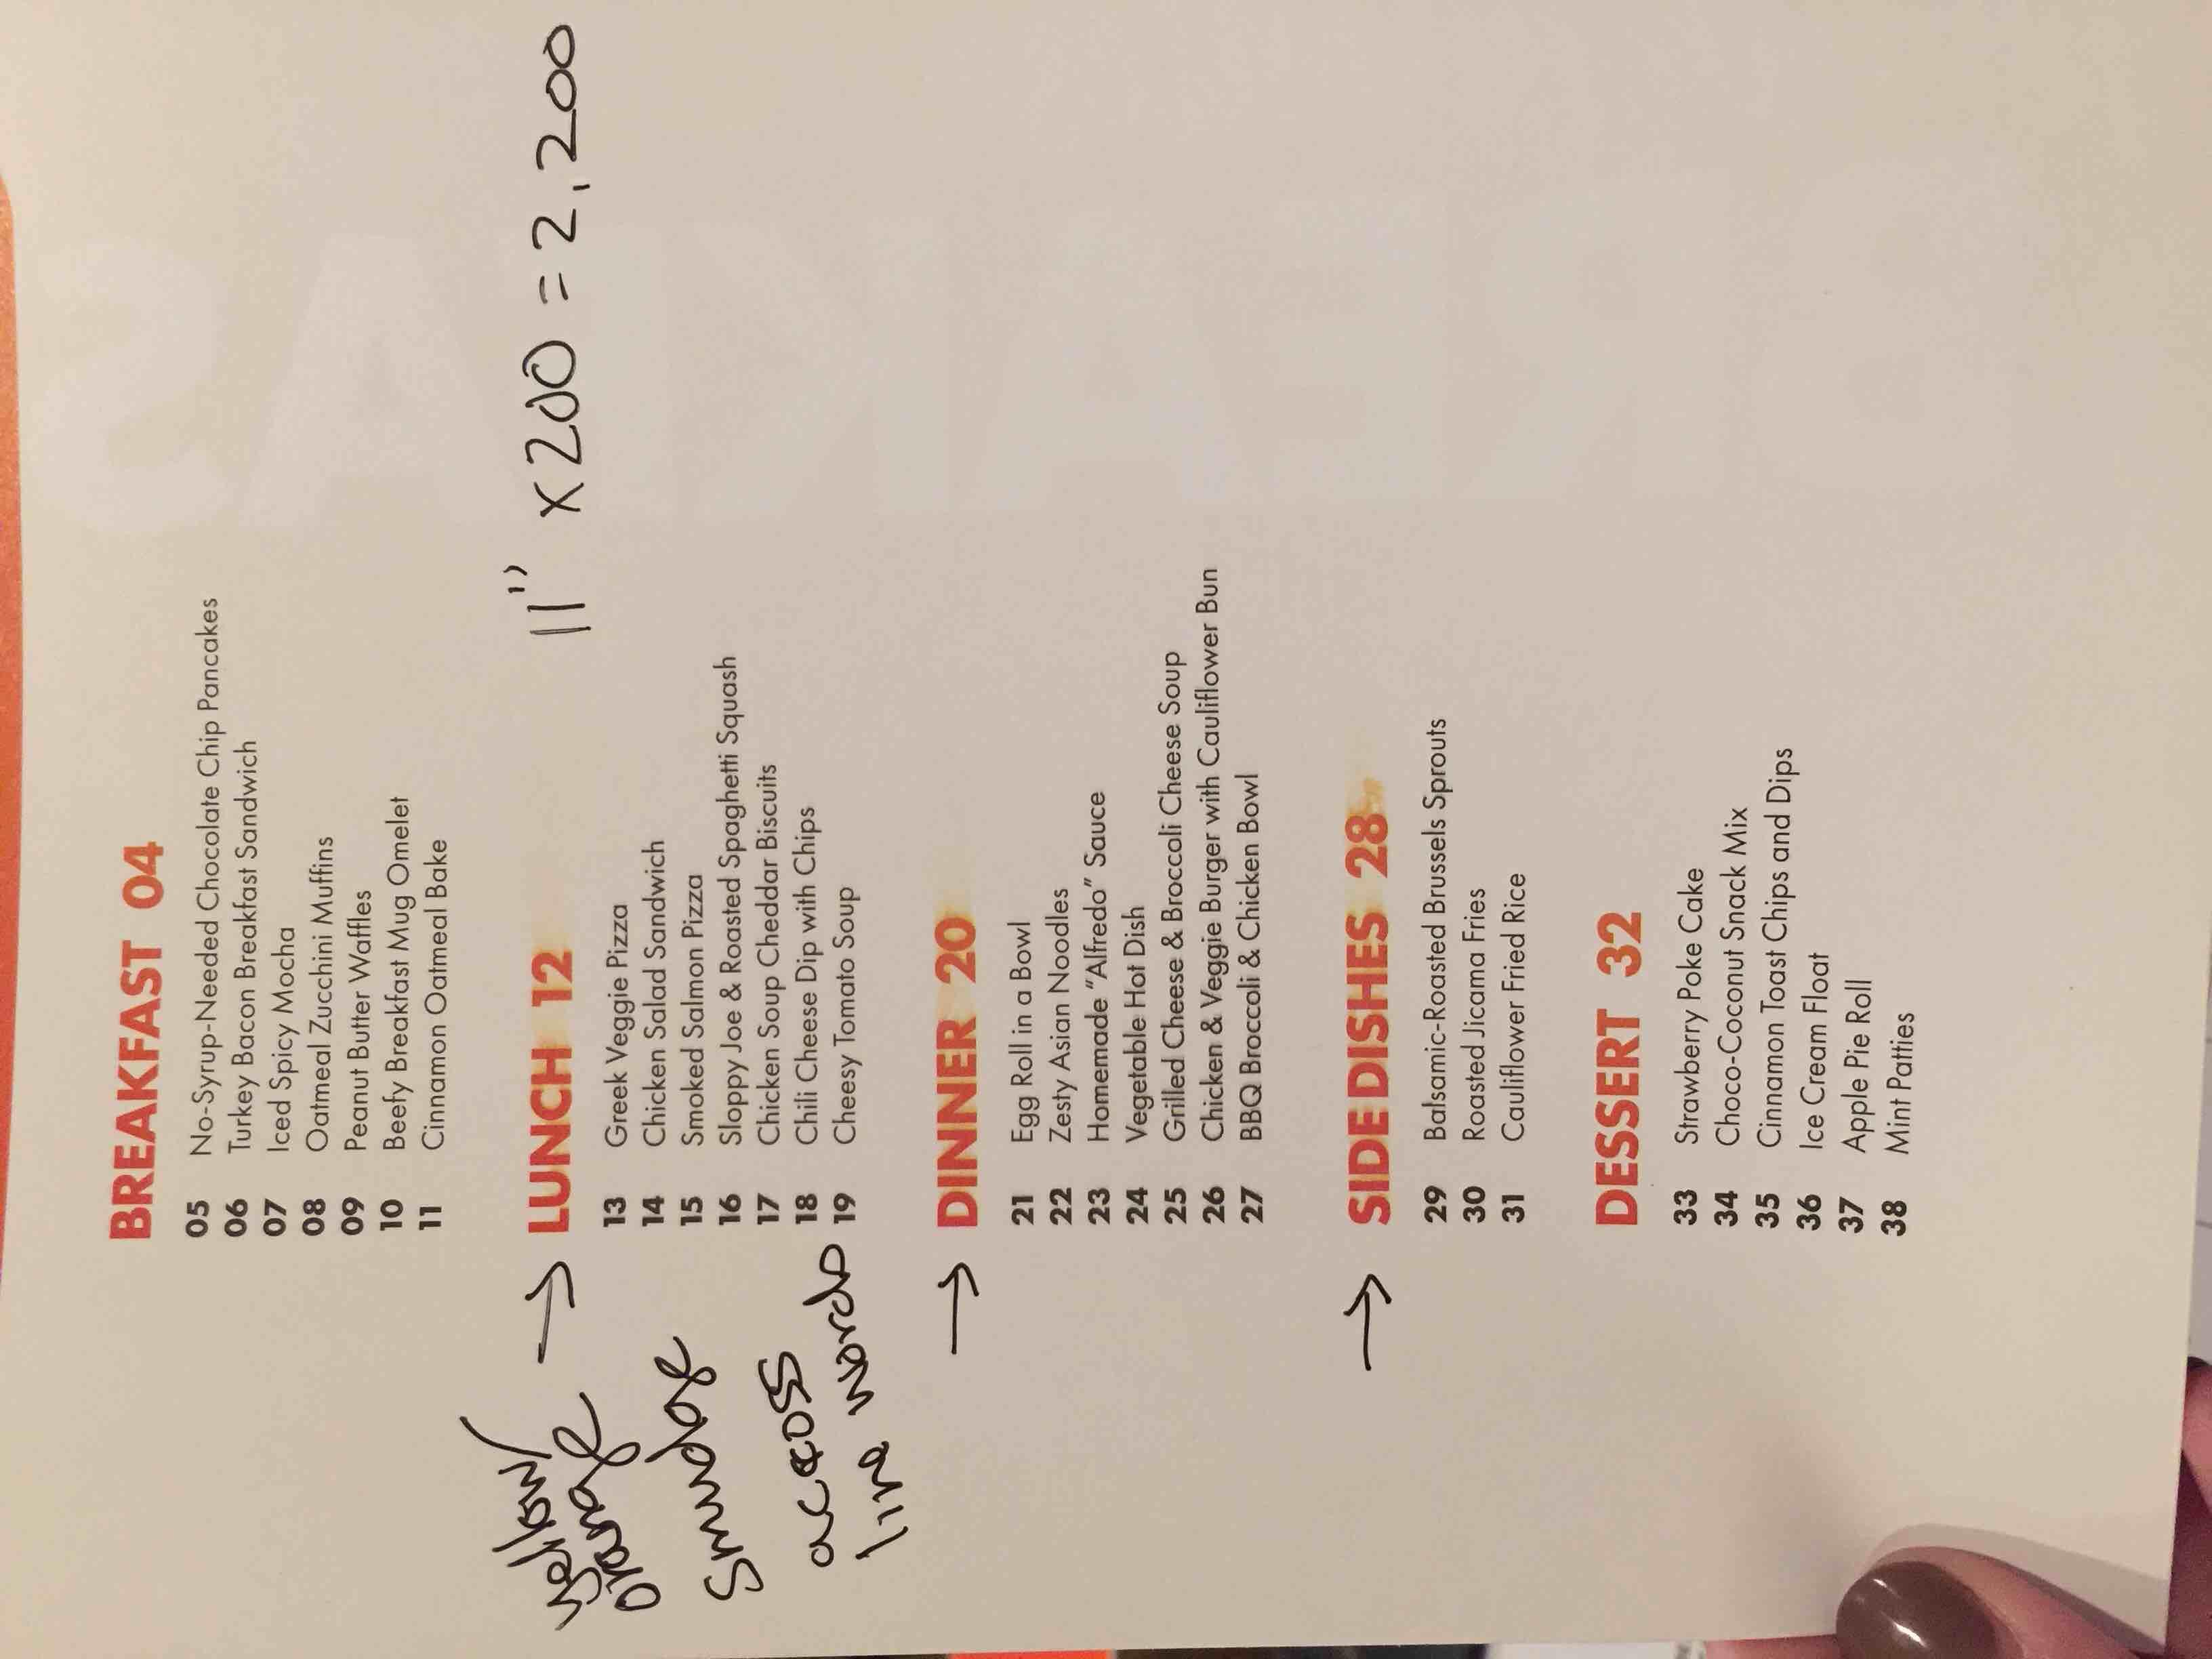 BREAKFAST 04
05 No-Syrup-Needed Chocolate Chip Pancakes
06 Turkey Bacon Breakfast Sandwich
07 Iced Spicy Mocha
08 Oatmeal Zucchini Muffins
09 Peanut Butter Waffles
10 Beefy Breakfast Mug Omelet
11 Cinnamon Oatmeal Bake
11" x 200 = 2,200
→ LUNCH 12
13 Greek Veggie Pizza
14 Chicken Salad Sandwich
15 Smoked Salmon Pizza
16 Sloppy Joe & Roasted Spaghetti Squash
17 Chicken Soup Cheddar Biscuits
18 Chili Cheese Dip with Chips
19 Cheesy Tomato Soup
yellow/
orange
Smudge
across
line words
→ DINNER 20
21 Egg Roll in a Bowl
22 Zesty Asian Noodles
23 Homemade “Alfredo” Sauce
24 Vegetable Hot Dish
25 Grilled Cheese & Broccoli Cheese Soup
26 Chicken & Veggie Burger with Cauliflower Bun
27 BBQ Broccoli & Chicken Bowl
→ SIDE DISHES 28
29 Balsamic-Roasted Brussels Sprouts
30 Roasted Jicama Fries
31 Cauliflower Fried Rice
DESSERT 32
33 Strawberry Poke Cake
34 Choco-Coconut Snack Mix
35 Cinnamon Toast Chips and Dips
36 Ice Cream Float
37 Apple Pie Roll
38 Mint Patties